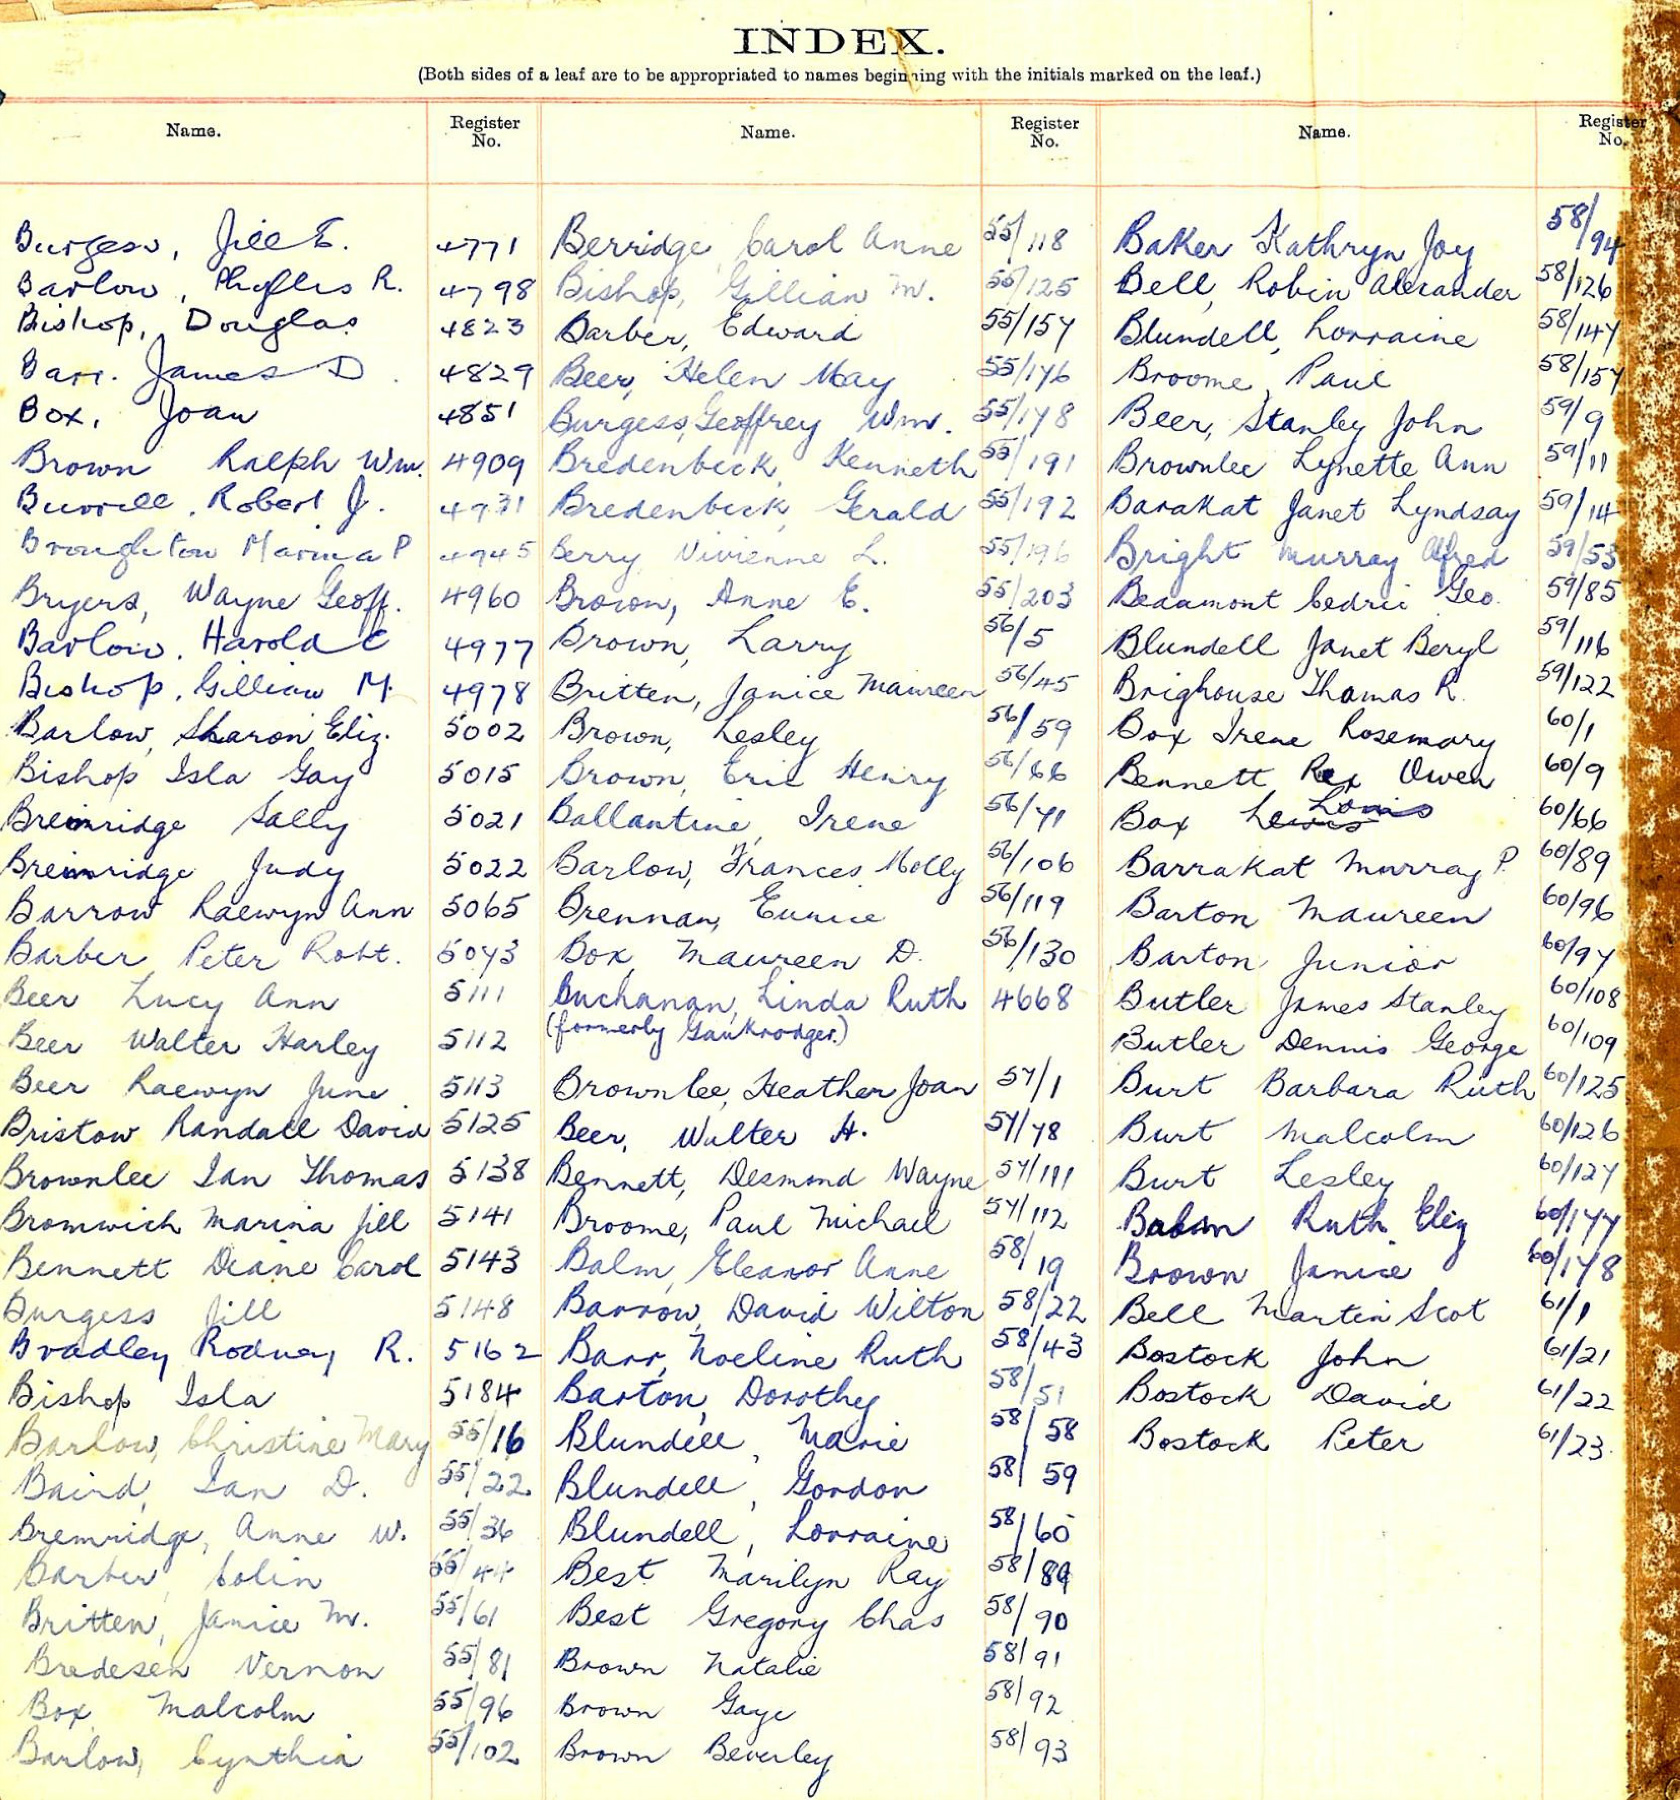 INDEX.
(Both sides of a leaf are to be appropriated to names beginning with the initials marked on the leaf.)
Name. Register No.
Burgess, Jill E. 4771
Barlow, Phyllis R. 4798
Bishop, Douglas 4823
Barr. James D. 4829
Box, Joan 4851
Brown Ralph Wm. 4909
Burrell, Robert J. 4931
Broughton Marina P 4945
Bryers, Wayne Geoff. 4960
Barlow, Harold C 4977
Bishop, Gillian M. 4978
Barlow, Sharon Eliz. 5002
Bishop Isla Gay 5015
Bremridge Sally 5021
Bremridge Judy 5022
Barrow Raewyn Ann 5065
Barber Peter Robt. 5073
Beer Lucy Ann 5111
Beer Walter Harley 5112
Beer Raewyn June 5113
Bristow Randall David 5125
Brownlee Ian Thomas 5138
Bromwich Marina Jill 5141
Bennett Diane Carol 5143
Burgess Jill 5148
Bradley Rodney R. 5162
Bishop Isla 5184
Barlow, Christine Mary 55/16
Baird, Ian D. 55/22
Bremridge, Anne W. 55/36
Barber, Colin 55/44
Britten, Janice M. 55/61
Bredesen Vernon 55/81
Box Malcolm 55/96
Barlow, Cynthia 55/102
Name. Register No.
Berridge Carol Anne 55/118
Bishop, Gillian M. 55/125
Barber, Edward 55/157
Beer, Helen May 55/176
Burgess, Geoffrey Wm. 55/178
Bredenbeck, Kenneth 55/191
Bredenbeck, Gerald 55/192
Berry Vivienne L. 55/196
Brown, Anne E. 55/203
Brown, Larry 56/5
Britten, Janice Maureen 56/45
Brown, Lesley 56/59
Brown, Eric Henry 56/66
Ballantine, Irene 56/71
Barlow, Frances Molly 56/106
Brennan, Eunice 56/119
Box, Maureen D. 56/130
Buchanan, Linda Ruth 4668
(formerly Gaukrodger.)
Brownlee, Heather Joan 57/1
Beer, Walter H. 57/78
Bennett, Desmond Wayne 57/111
Broome, Paul Michael 57/112
Balm, Eleanor Anne 58/19
Barrow, David Wilton 58/22
Barr, Noeline Ruth 58/43
Barton, Dorothy 58/51
Blundell, Marie 58/58
Blundell, Gordon 58/59
Blundell, Lorraine 58/60
Best Marilyn Ray 58/89
Best Gregory Chas 58/90
Brown Natalie 58/91
Brown Gaye 58/92
Brown Beverley 58/93
Name. Register No.
Baker Kathryn Joy 58/94
Bell, Robin Alexander 58/126
Blundell, Lorraine 58/147
Broome, Paul 58/157
Beer, Stanley John 59/9
Brownlee Lynette Ann 59/11
Barakat Janet Lyndsay 59/14
Bright Murray Alfred 59/53
Beaumont Cedric Geo. 59/85
Blundell Janet Beryl 59/116
Brighouse Thomas R. 59/122
Box Irene Rosemary 60/1
Bennett Rex Owen 60/9
Box Lewis Louis 60/66
Barrakat Murray P. 60/89
Barton Maureen 60/96
Barton Junior 60/97
Butler James Stanley 60/108
Butler Dennis George 60/109
Burt Barbara Ruth 60/125
Burt Malcolm 60/126
Burt Lesley 60/127
Ruth Eliz 60/177
Brown Janice 60/178
Bell Martin Scot 61/1
Bostock John 61/21
Bostock David 61/22
Bostock Peter 61/23